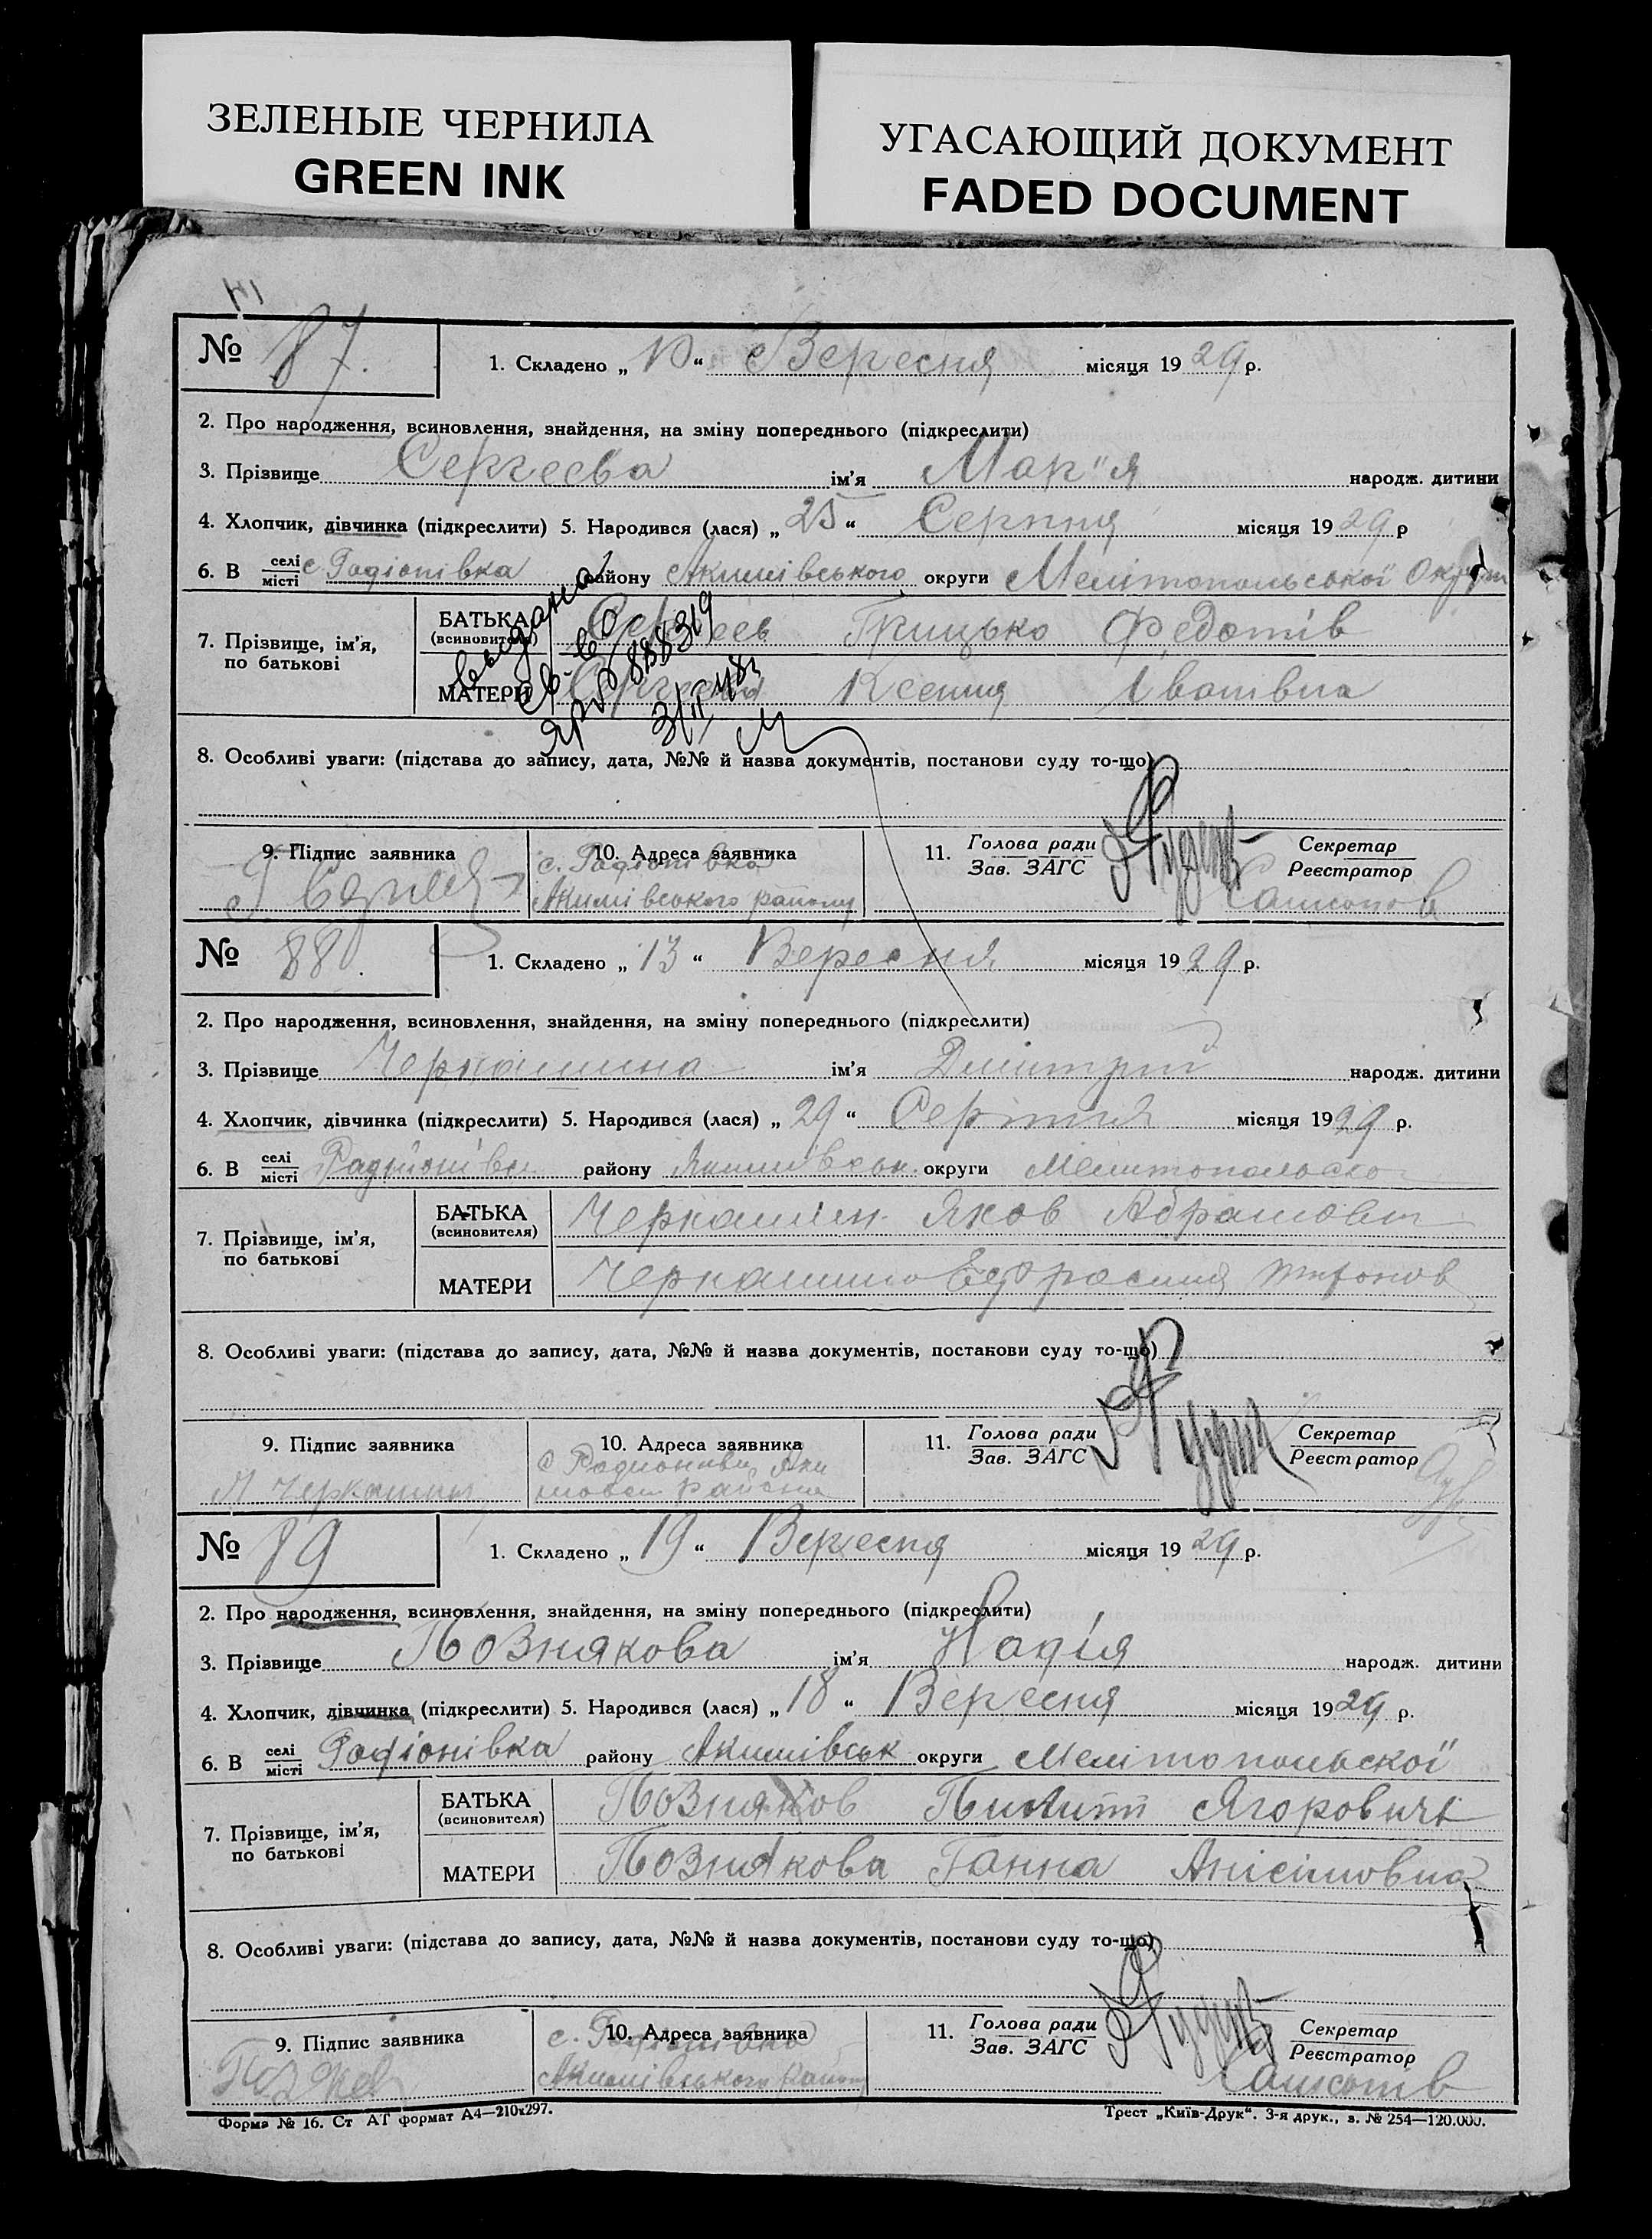 ЗЕЛЕНЫЕ ЧЕРНИЛА
GREEN INK
УГАСАЮЩИЙ ДОКУМЕНТ
FADED DOCUMENT
№ 87. 1. Складено „10“ Вересня місяця 1929 р.
2. Про народження, всиновлення, знайдення, на зміну попереднього (підкреслити)
3. Прізвище Сергеєва ім'я Мар"я народж. дитини
4. Хлопчик, дівчинка (підкреслити) 5. Народився (лася) „25“ Серпня місяця 1929 р
6. В селі/місті с Радіонівка району Акимівського округи Мелітопольської Округи
7. Прізвище, ім'я, по батькові
БАТЬКА (всиновителя) Сергеєв Грицько Федотів
МАТЕРИ Сергеєва Ксения Іванівна
8. Особливі уваги: (підстава до запису, дата, №№ й назва документів, постанови суду то-що)
9. Підпис заявника 10. Адреса заявника 11. Голова ради Секретар
с. Радіонівка Зав. ЗАГС Реєстратор
Акимівського району
№ 88. 1. Складено „13“ Вересня місяця 1929 р.
2. Про народження, всиновлення, знайдення, на зміну попереднього (підкреслити)
3. Прізвище Черкашина ім'я Дмитрий народж. дитини
4. Хлопчик, дівчинка (підкреслити) 5. Народився (лася) „29“ Серпня місяця 1929 р.
6. В селі/місті Радіонівка району Якимівськ. округи Мелитопольско
7. Прізвище, ім'я, по батькові
БАТЬКА (всиновителя) Черкашин Яков Абрамович
МАТЕРИ Черкашина Ефросиния
8. Особливі уваги: (підстава до запису, дата, №№ й назва документів, постанови суду то-що)
9. Підпис заявника 10. Адреса заявника 11. Голова ради Секретар
Я Черкашин Зав. ЗАГС Реєстратор
№ 89 1. Складено „19“ Вересня місяця 1929 р.
2. Про народження, всиновлення, знайдення, на зміну попереднього (підкреслити)
3. Прізвище Познякова ім'я Надія народж. дитини
4. Хлопчик, дівчинка (підкреслити) 5. Народився (лася) „18“ Вересня місяця 1929 р.
6. В селі/місті Радіонівка району Акимівськ округи Мелітопольської
7. Прізвище, ім'я, по батькові
БАТЬКА (всиновителя) Позняков Пилип Ягорович
МАТЕРИ Познякова Ганна Анісімовна
8. Особливі уваги: (підстава до запису, дата, №№ й назва документів, постанови суду то-що)
9. Підпис заявника 10. Адреса заявника 11. Голова ради Секретар
с. Радіонівка Зав. ЗАГС Реєстратор
Акимівського району
Форма № 16. Ст АТ формат А4—210х297. Трест „Київ-Друк“. 3-я друк., з. № 254—120.000.